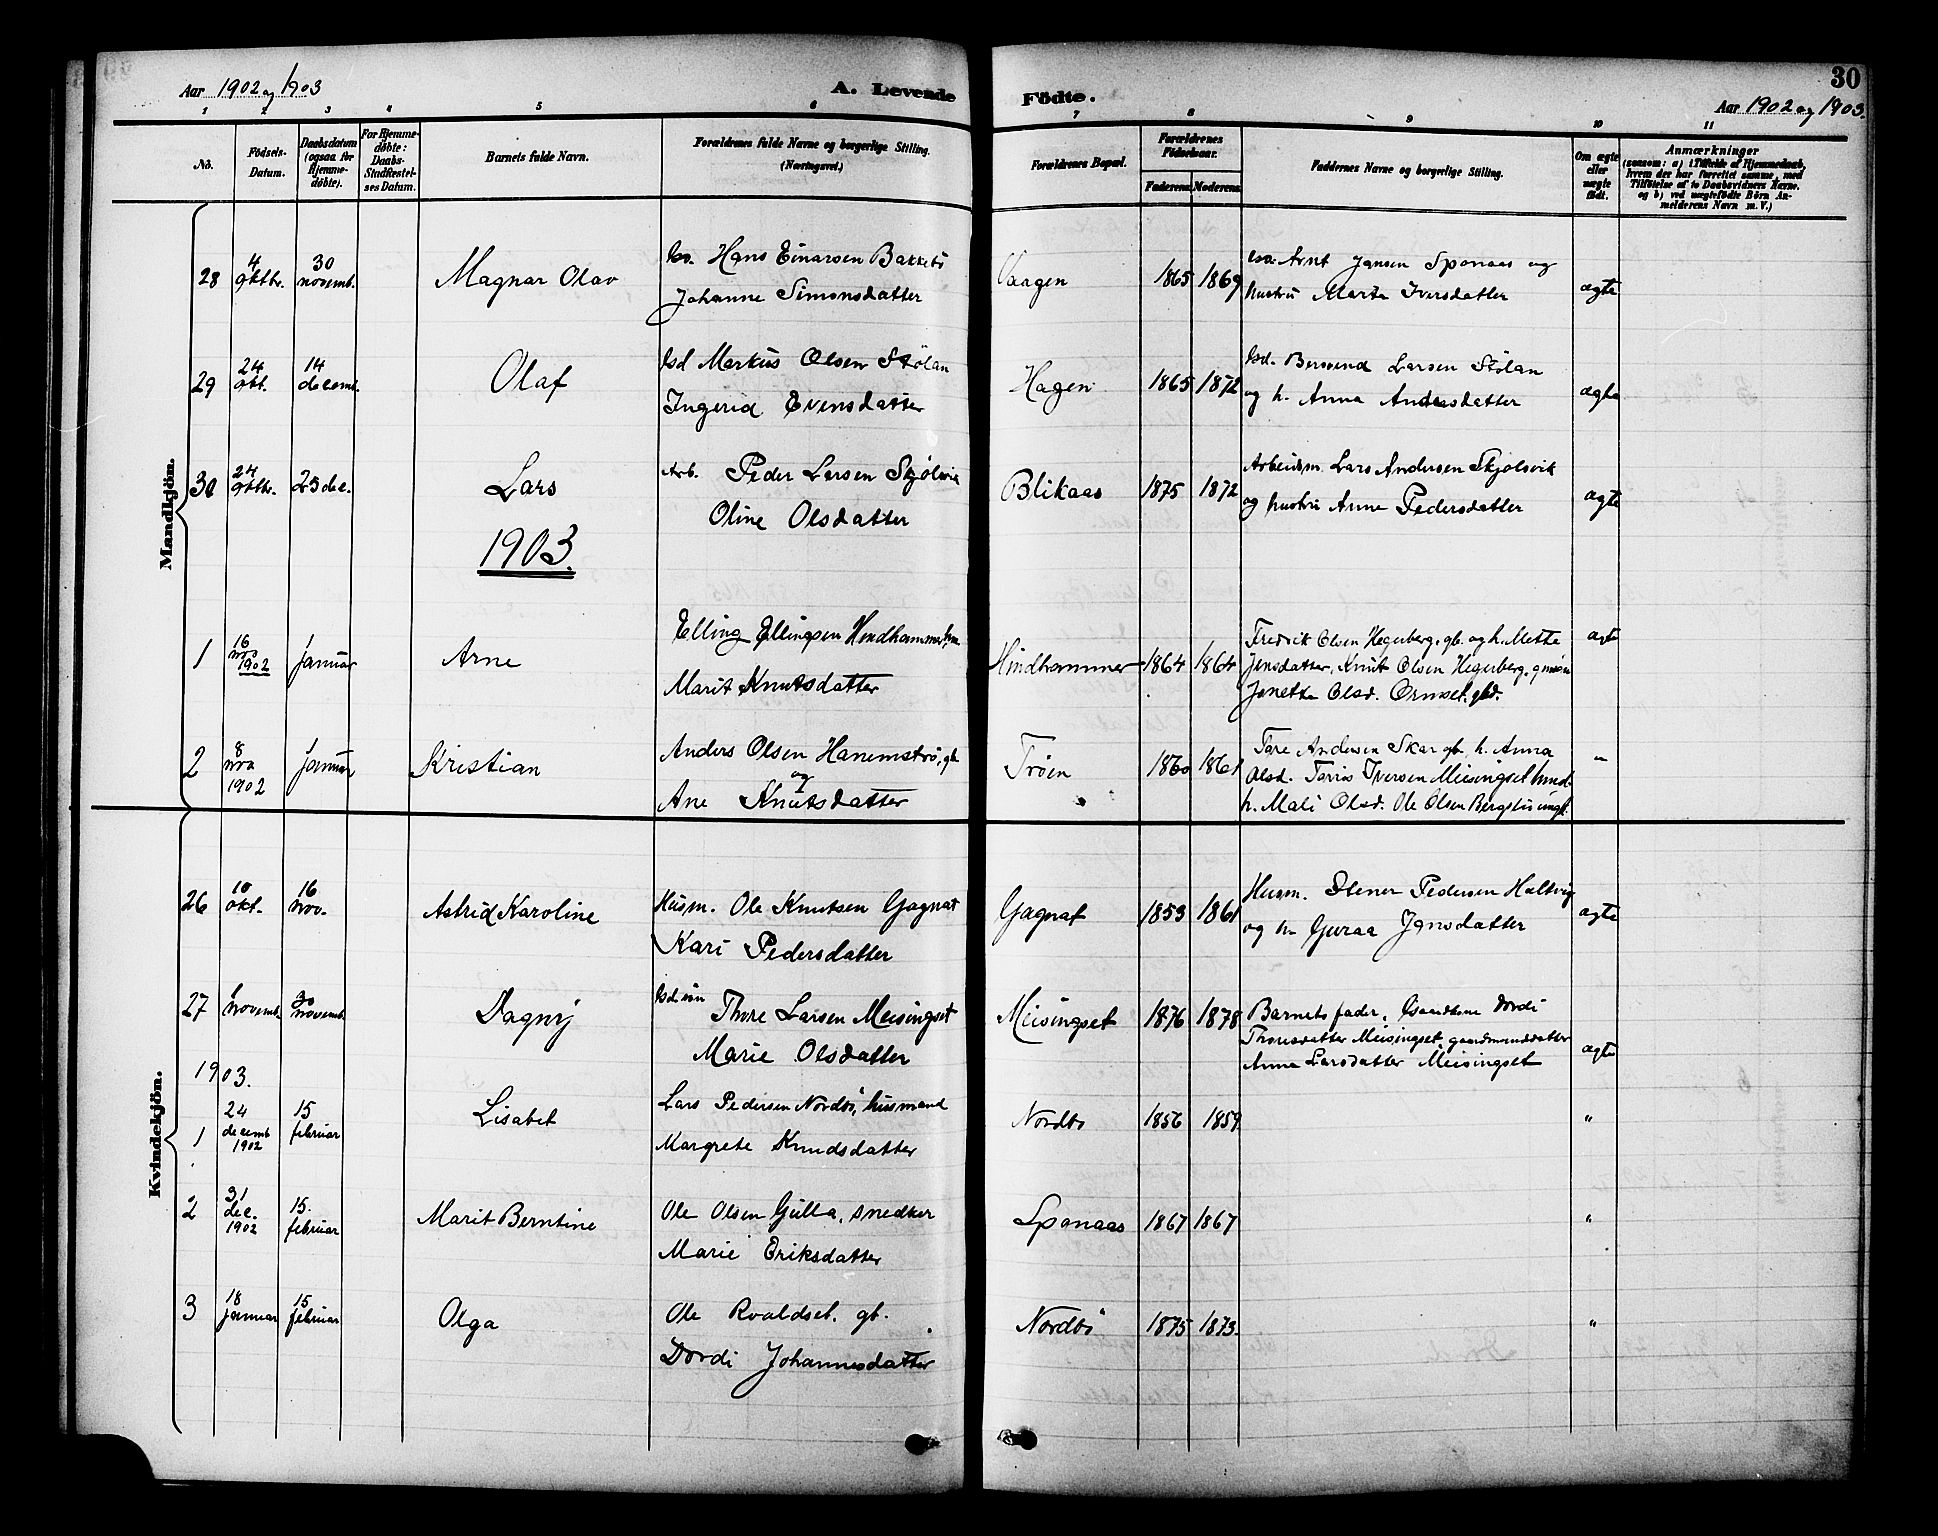 Aar 1902 og 1903
A. Levende
Födte.
30
Aar 1902 og 1903.
1 2 3 4 5 6 7 8 9 10 11
No.
Födsels-Datum.
Daabsdatum (ogsaa for Hjemme-döbte).
For Hjemme-döbte: Daabs-Stadfæstel-ses Datum.
Barnets fulde Navn.
Forældrenes fulde Navne og borgerlige Stilling. (Næringsvei.)
Forældrenes Bopæl.
Forældrenes Födselsaar.
Faderens. Moderens.
Faddernes Navne og borgerlige Stilling.
Om ægte eller uægte födt.
Anmærkninger
(saasom: a) i Tilfælde af Hjemmedaab, hvem der har forrettet samme, med Tilföielse af to Daabsvidners Navne. og b) ved uægtefödte Börn An-melderens Navn m. V.)
Mandkjön.
28 4 oktbr. 30 novemb. Magnar Olav Hans Einarsen Bakkebö Vaagen 1865 1869 Arnt Jansen Sponaas og
Johanne Simonsdatter hustru Marta Iversdatter ægte
29 24 okt. 14 decemb. Olaf Gsd Markus Olsen Stölan Hagen 1865 1872 Gsd. Larsen Stölan
Ingerid Evensdatter og h. Anna Andersdatter ægte
30 24 oktbr. 25 dec. Lars Arb. Peder Larsen Skjölsvik Blikaas 1875 1872 Arbeidsm. Lars Andersen Skjölsvik
Oline Olsdatter og hustru Anne Pedersdatter ægte
1903.
1 16 nov 1902 1 januar Arne Elling Ellingsen Hindhammer Hindhammer 1864 1864 Fredrik Olsen Hegerberg, gb. og h. Mette ægte
Marit Knutsdatter Jensdatter, Knut Olsen Hegerberg,
Janetta Olsd. Ormset,
2 8 nov 1902 1 januar Kristian Anders Olsen Hanemströ, gb. Tröen 1860 1861 Tore Andersen Skar gb. h. Anna "
og
Ane Knutsdatter Olsd. Iversen Meisingset
h. Mali Olsd. Ole Olsen
Kvindekjön.
26 10 okt. 16 nov. Astrid Karoline Husm. Ole Knutsen Gagnat Gagnat 1853 1861 Husm. Stener Pedersen Haltvig
Kari Pedersdatter og h. Guraa Jansdatter ægte
27 1 novemb. 30 novemb. Dagny Thore Larsen Meisingset Meisingset 1876 1878 Barnets fader, Dordi
Marie Olsdatter Thoresdatter Meisingset, gaardmandsdatter
Anna Larsdatter Meisingset ægte
1903.
1 24 decemb 1902 15 februar Lisabet Lars Pedersen Nordbö, husmand Nordbö 1856 1859. "
Margrete Knudsdatter
2 31 dec. 1902 15. februar Marit Berntine Ole Olsen Gulla, snedker Sponaas 1867 1867 "
Marie Eriksdatter
3 18 januar 15 februar Olga Ole Roaldset. gb. Nordbö 1875 1873. "
Dordi Johannesdatter